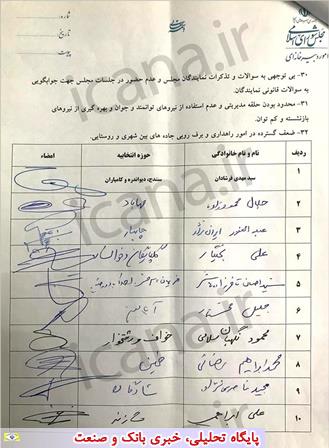 شماره:
تاریخ:
پیوست:
مجلس شورای اسلامی
icana.ir
۳۰- بی توجهی به سوالات و تذکرات نمایندگان مجلس و عدم حضور در جلسات مجلس جهت جوابگویی
به سوالات قانونی نمایندگان.
۳۱- محدود بودن حلقه مدیریتی و عدم استفاده از نیروهای توانمند و جوان و بهره گیری از نیروهای
بازنشسته و کم توان.
۳۲- ضعف گسترده در امور راهداری و برف روبی جاده های بین شهری و روستایی.
ردیف نام و نام خانوادگی حوزه انتخابیه امضاء
۱ سید مهدی فرشادان سنندج، دیواندره و کامیاران
۲ جلال محمودزاده مهاباد
۳ عبدالغفور ایران نژاد چابهار
۴ علی بختیار گلپایگان و خوانسار
۵
۶ جلیل
۷ محمود نگهبان سلامی خواف و رشتخوار
۸ محمدابراهیم رضائی خمین
۹ مجید ناصری نژاد شادگان
۱۰ علی ابراهیمی شازند
پایگاه تحلیلی، خبری بانک و صنعت